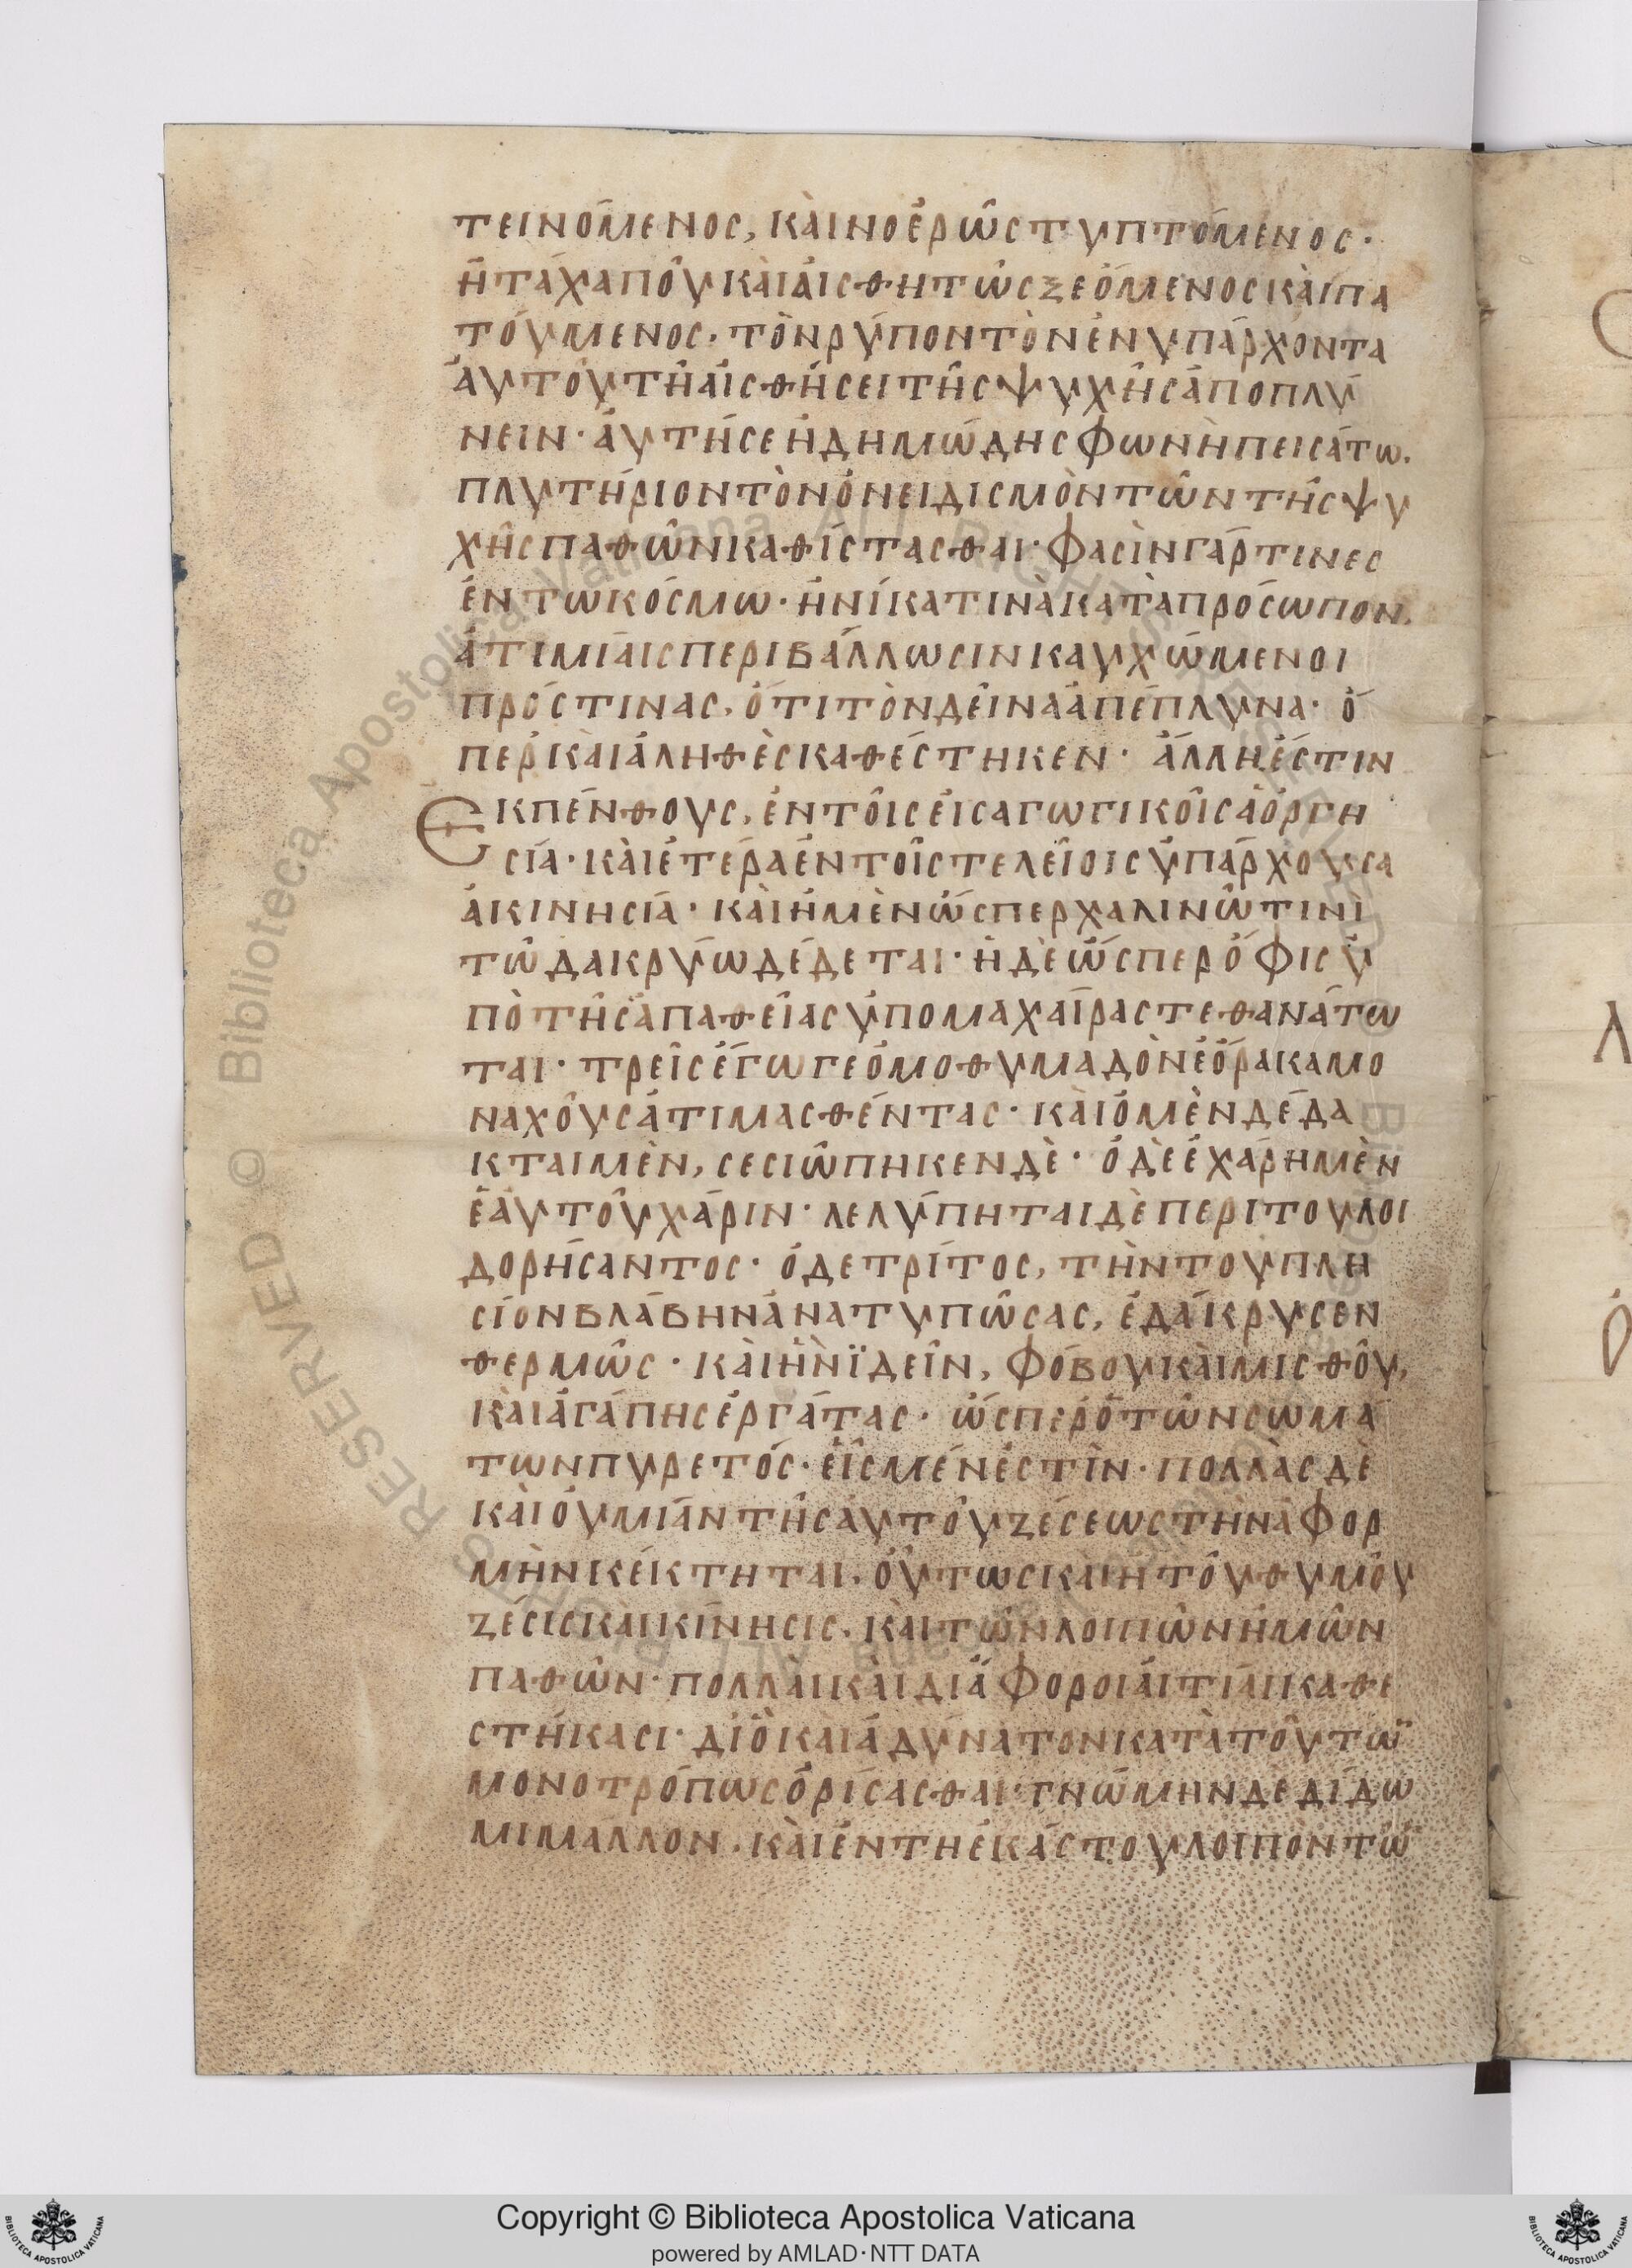 τεινόμενος, κὰι νοἐρῶς τυπτόμενος·
ἢ τάχα πoῦ κὰι ἀισθητῶς ξεόμενος κὰι πα
τούμενος· τὸν ρύπον τὸν ἐνυπάρχοντα
ἀυτοῦ τῆ ἀισθήσει τῆς ψυχῆς ἀποπλύ
νειν· ἀυτή σε ἡ δημώδης φωνὴ πεισάτω.
πλυτήριον τὸν ὀνειδισμὸν τῶν τῆς ψυ
χῆς παθῶν καθίστασθαι· φασὶν γάρ τινες
ἐν τω κόσμω· ἡνίκα τινὰ κατὰ πρόσωπον,
ἀτιμίαις περιβάλλωσιν καυχώμενοι
πρός τινας, ὅτι τὸν δεῖνα ἀπέπλυνα· ὅ
περ κὰι ἀληθὲς καθέστηκεν· ἄλλη ἐστιν
Εκ πένθους, ἐν τοῖς ἐισαγωγικοῖς ἀοργη
σία· κὰι ἑτέρα ἐν τοῖς τελείοις ὑπάρχουσα
ἀκινησία· κὰι ἡ μὲν ὥσπερ χαλινῶ τινὶ
τῶ δακρύω δέδεται· ἡ δὲ ὥσπερ ὄφις ὑ
πὸ τῆς ἀπαθείας ὑπο μαχαίρας τεθανάτω
ται· τρεῖς ἔγωγε ὁμοθυμαδὸν ἑόρακα μο
ναχοὺς ἀτιμασθέντας· κὰι ὁ μὲν δέδα
κται μὲν, σεσιώπηκεν δὲ· ὁ δὲ ἐχάρη μὲν
ἑαυτοῦ χάριν· λελύπηται δὲ περι του λοι
δορήσαντος· ὁ δε τρίτος, τὴν του πλη
σίον βλάβην ἀνατυπώσας, ἐδάκρυσεν
θερμῶς· κὰι ἦν ϊδεῖν, φόβου κὰι μισθοῦ,
κὰι ἀγάπης ἐργάτας· ὥσπερ ὁ τῶν σωμά
των πυρετός· εἷς μέν ἐστὶν· πολλὰς δὲ
κὰι ὀυ μίαν τῆς ἀυτοῦ ζέσεως τὴν ἀφορ
μὴν κέκτηται, οὕτως κὰι ἡ τοῦ θυμοῦ
ζέσις κὰι κίνησις, κὰι τῶν λοιπῶν ἡμῶν
παθῶν· πολλὰι κὰι διάφοροι ἀιτίαι καθε
στήκασι· διὸ κὰι ἀδύνατον κατὰ τοῦτω
μονοτρόπως ὁρίσασθαι· γνώμην δὲ δίδω
μι μαλλον, κὰι ἐν τη ἑκάστου λοιπὸν τῶ